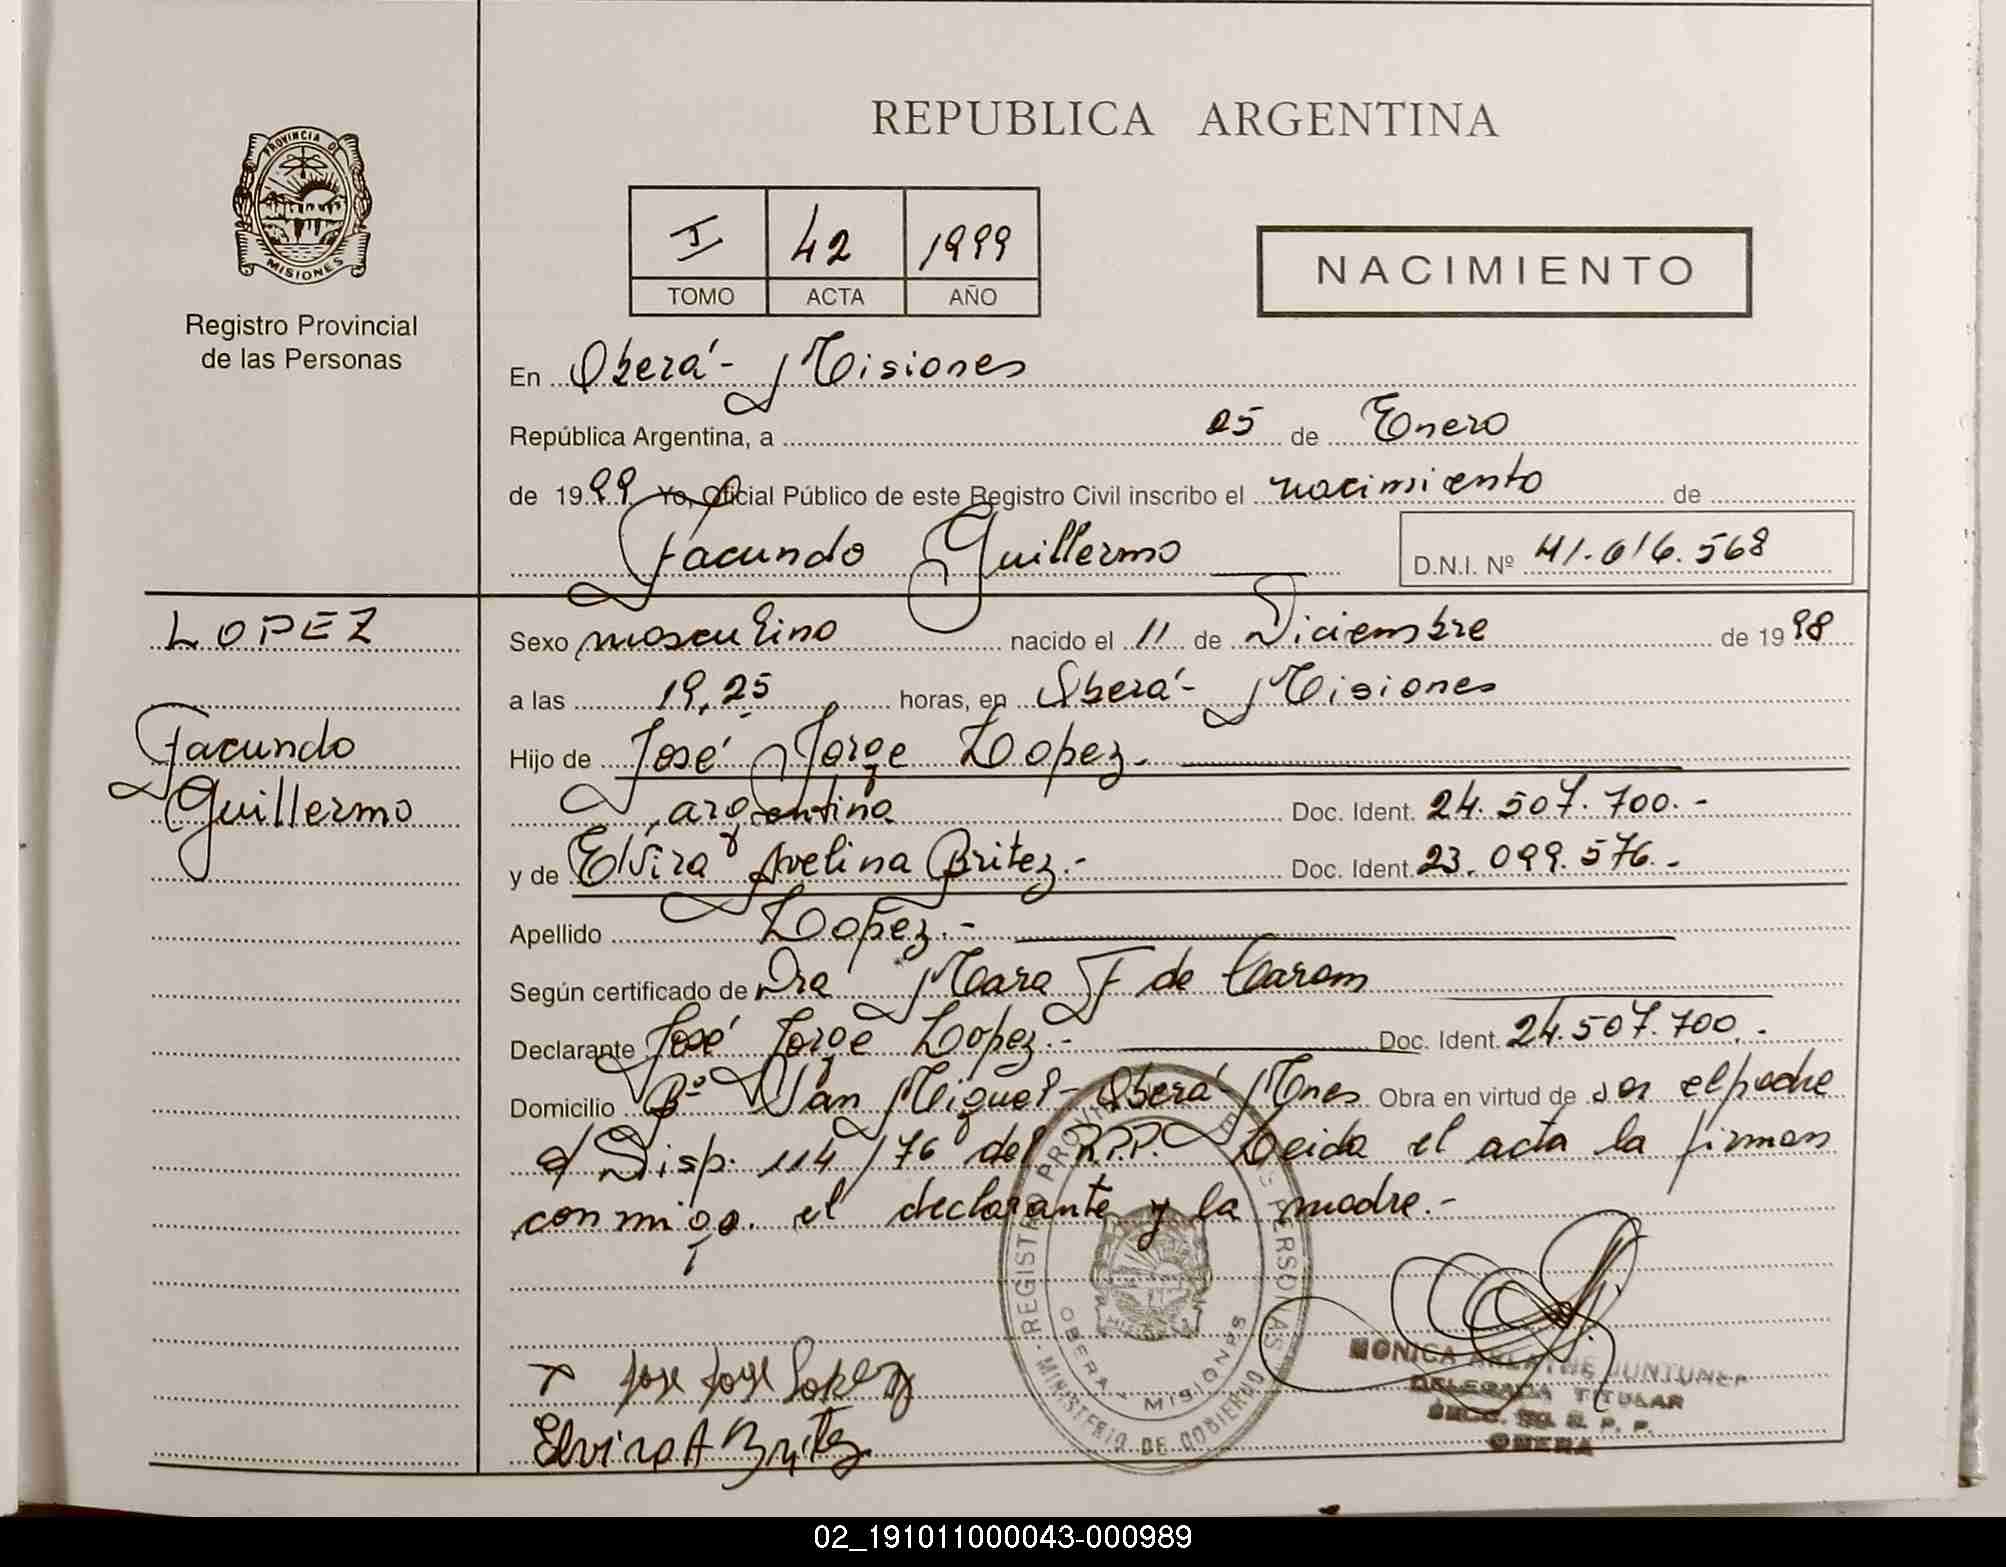 REPUBLICA ARGENTINA
PROVINCIA DE
MISIONES
Registro Provincial
de las Personas
I 42 1999
TOMO ACTA AÑO
NACIMIENTO
En Oberá - Misiones
República Argentina, a 05 de Enero
de 1999 Yo, Oficial Público de este Registro Civil inscribo el nacimiento de
Facundo Guillermo D.N.I. Nº 41.016.568
LOPEZ
Facundo
Guillermo
Sexo masculino nacido el 11 de Diciembre de 1998
a las 19,25 horas, en Oberá - Misiones
Hijo de José Jorge Lopez.-
argentina Doc. Ident. 24.507.700.-
y de Elvira Avelina Britez.- Doc. Ident. 23.099.576.-
Apellido Lopez.-
Según certificado de Dra Mara F de
Declarante José Jorge Lopez.- Doc. Ident. 24.507.700.-
Domicilio Bº San Miguel - Oberá - Mnes Obra en virtud de ser el padre
s/ Disp. 114/76 del R.P.P. Leida el acta la firman
conmigo. el declarante y la madre.-
REGISTRO PROVINCIAL DE LAS PERSONAS
MINISTERIO DE GOBIERNO
OBERA - MISIONES
x Jose Jorge Lopez
Elvira A Britez
MONICA
DELEGADA TITULAR
R. P. P.
OBERA
02_191011000043-000989